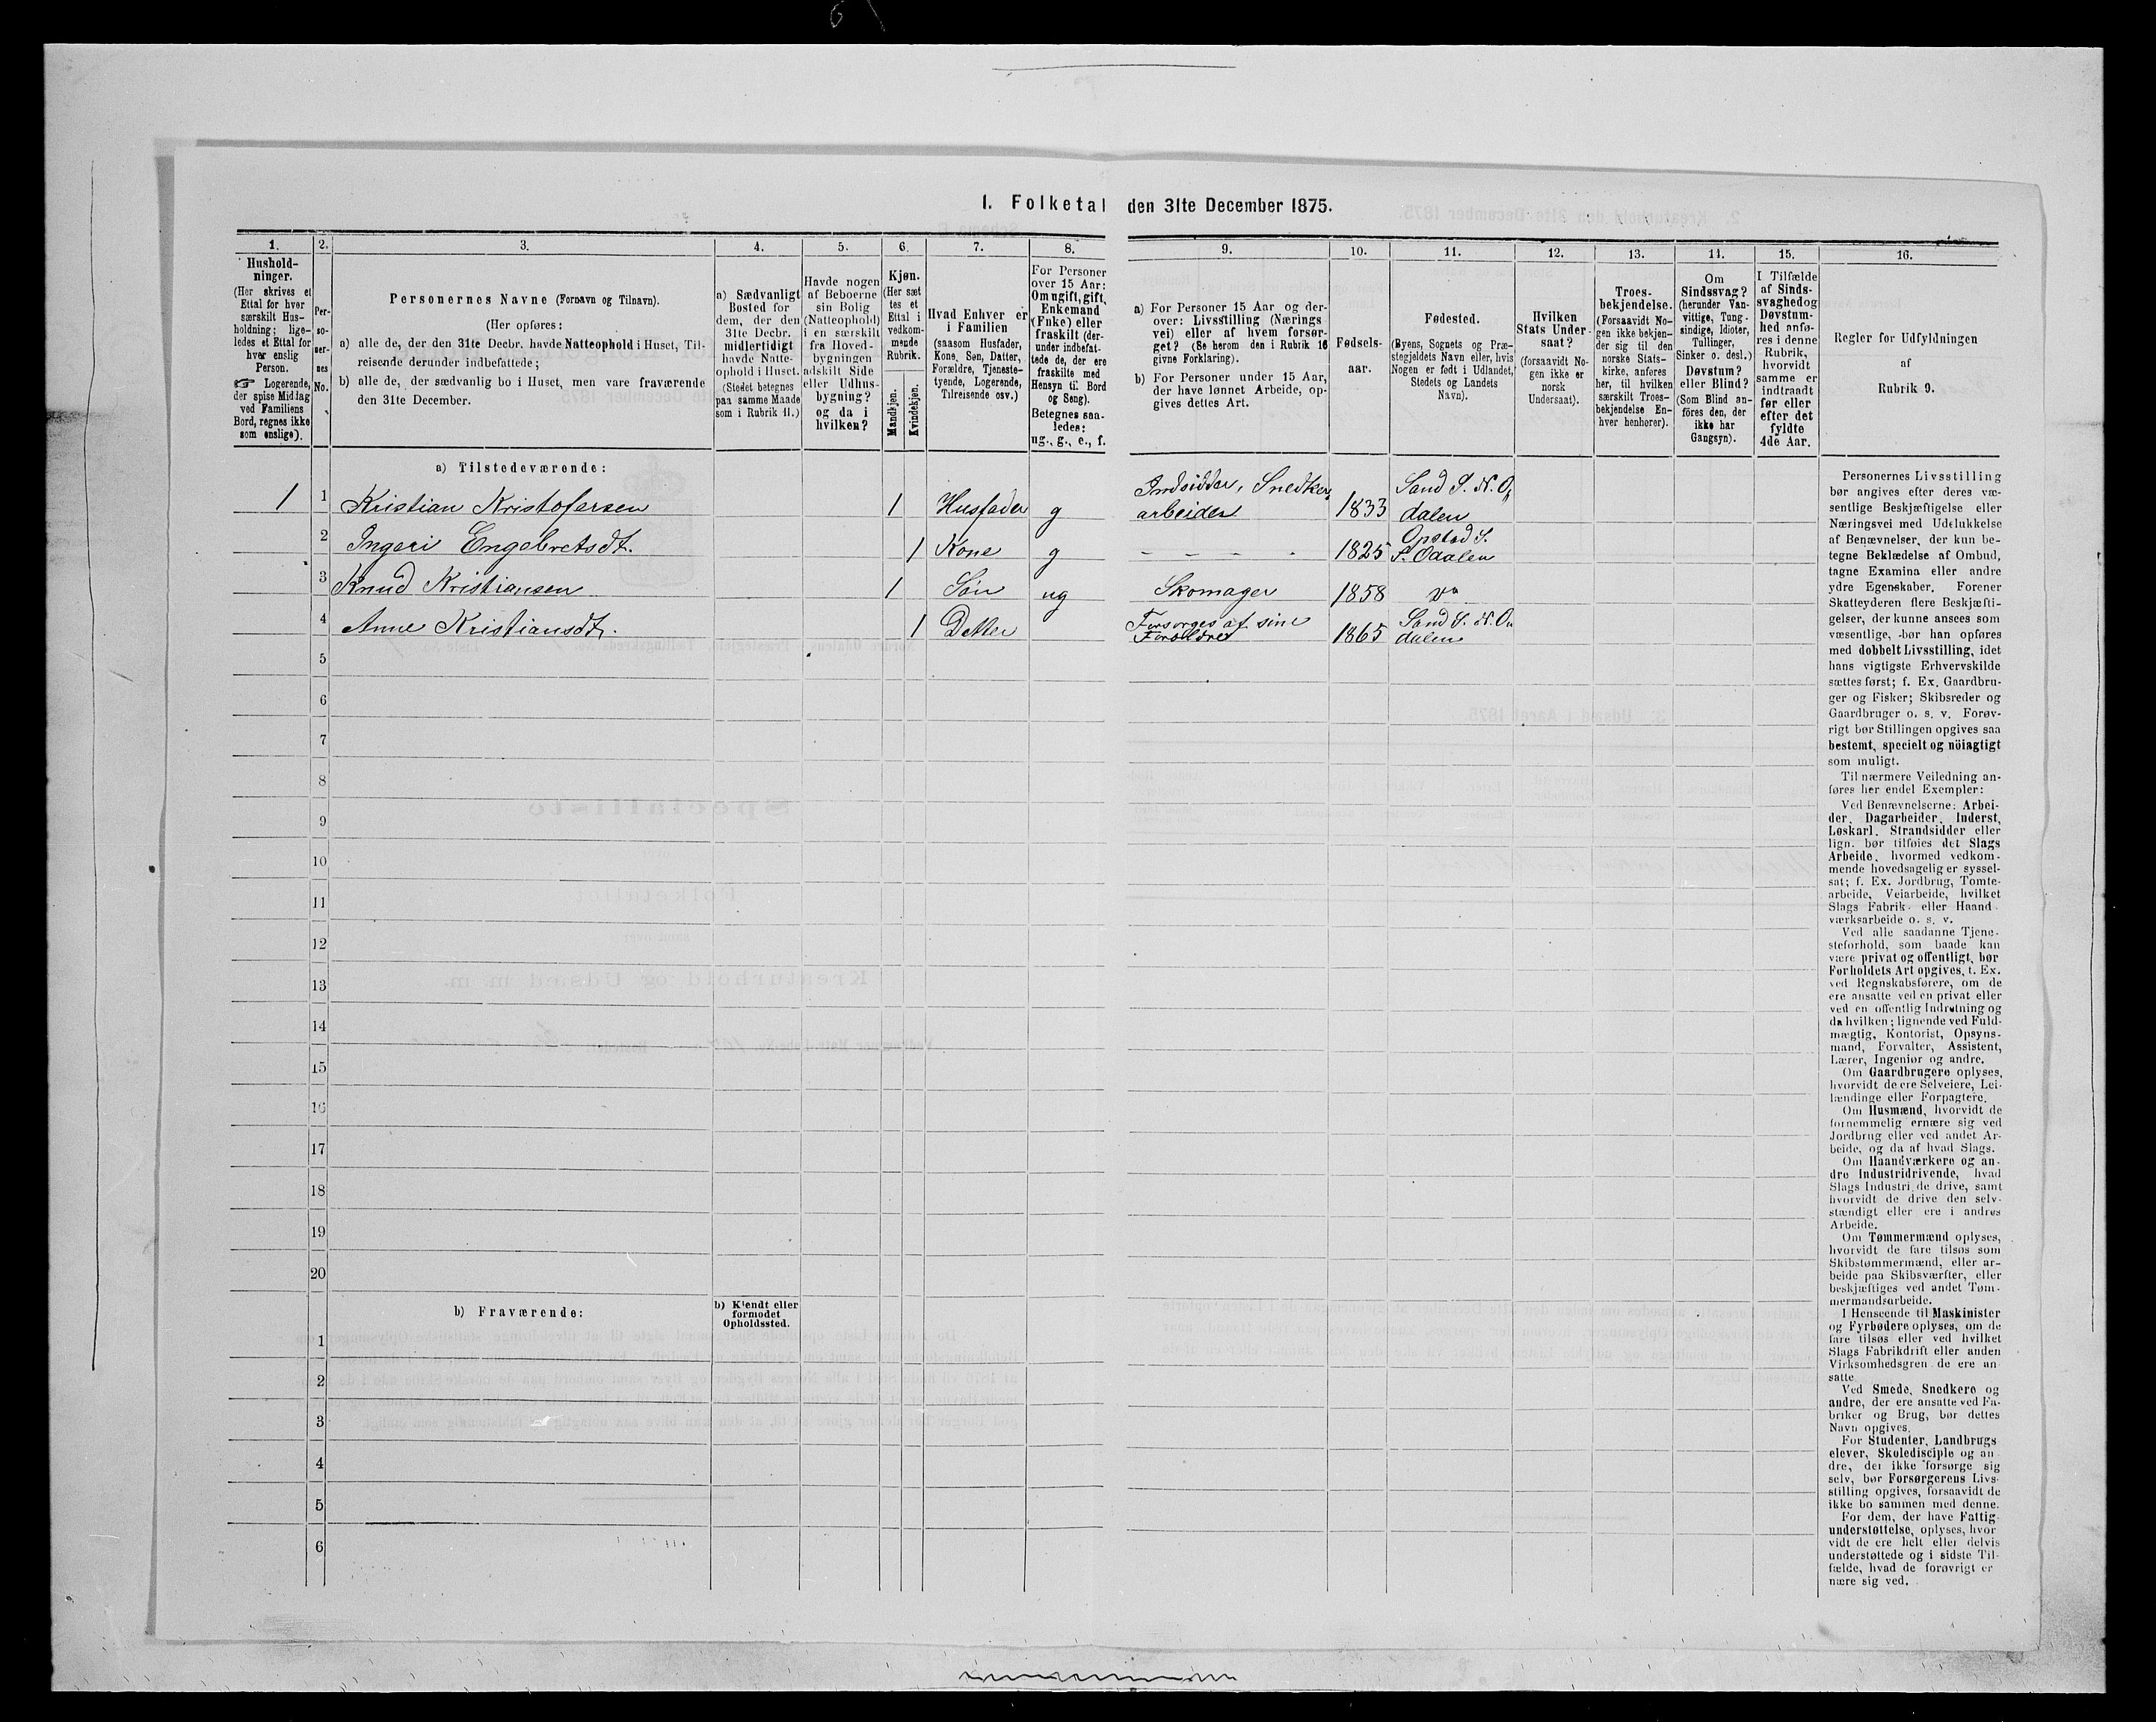 1. Folketal den 31te December 1875.
1.
Hushold-
ninger.
(Her skrives et
Ettal for hver
særskilt Hus-
holdning; lige-
ledes et Ettal for
hver enslig
Person.
☞ Logerende,
der spise Middag
ved Familiens
Bord, regnes ikke
som enslige).
2.
Per-
so-
ner-
nes
No.
3.
Personernes Navne (Fornavn og Tilnavn).
(Her opføres:
a) alle de, der den 31te Decbr. havde Natteophold i Huset, Til-
reisende derunder indbefattede;
b) alle de, der sædvanlig bo i Huset, men vare fraværende
den 31te December.
4.
a) Sædvanligt
Bosted for
dem, der den
31te Decbr.
midlertidigt
havde Natte-
ophold i Huset.
(Stedet betegnes
paa samme Maade
som i Rubrik 11.)
5.
Havde nogen
af Beboerne
sin Bolig
(Natteophold)
i en særskilt
fra Hoved-
bygningen
adskilt Side
eller Udhus-
bygning?
og da i
hvilken?
6.
Kjøn.
(Her sæt
tes et
Ettal i
vedkom-
mende
Rubrik.
Mandkjøn.
Kvindekjøn.
7.
Hvad Enhver er
i Familien
(saasom Husfader,
Kone, Søn, Datter,
Forældre, Tjeneste-
tyende, Logerende,
Tilreisende osv.)
8.
For Personer
over 15 Aar:
Om ugift, gift,
Enkemand
(Enke) eller
fraskilt (der-
under indbefat-
tede de, der ere
fraskilte med
Hensyn til Bord
og Seng).
Betegnes saa-
ledes:
ug., g., e., f.
9.
a) For Personer 15 Aar og der-
over: Livsstilling (Nærings-
vei) eller af hvem forsør-
get? (Se herom den i Rubrik 16
givne Forklaring).
b) For Personer under 15 Aar,
der have lønnet Arbeide, op-
gives dettes Art.
10.
Fødsels-
aar.
11.
Fødested.
(Byens, Sognets og Præ-
stegjeldets Navn eller, hvis
Nogen er født i Udlandet,
Stedets og Landets
Navn).
12.
Hvilken
Stats Under-
saat?
(forsaavidt No-
gen ikke er
norsk
Undersaat).
13.
Troes-
bekjendelse.
(Forsaavidt No-
gen ikke bekjen-
der sig til den
norske Stats-
kirke, anføres
her, til hvilken
særskilt Troes-
bekjendelse En-
hver henhører).
14.
Om
Sindssvag?
(herunder Van-
vittige, Tung-
sindige, Idioter,
Tullinger,
Sinker o. desl.)
Døvstum?
eller Blind?
(Som Blind an-
føres den, der
ikke har
Gangsyn).
15.
I Tilfælde
af Sinds-
svaghed og
Døvstum-
hed anfø-
res i denne
Rubrik,
hvorvidt
samme er
indtraadt
før eller
efter det
fyldte
4de Aar.
16.
Regler for Udfyldningen
af
Rubrik 9.
a) Tilstedeværende:
1 1 Kristian Kristofersen 1 Husfader g Indsidder, Snedker arbeider 1833 Sand S. N. O dalen
2 Ingeri Engebretsdt. 1 Kone g - - - - 1825 Opstad S. S. Odalen
3 Knud Kristiansen 1 Søn ug Skomager 1858 do
4 Anne Kristiansdt. 1 Datter Forsørges af sine Forældre 1865 Sand S. N. O dalen
5
6
7
8
9
10
11
12
13
14
15
16
17
18
19
20
b) Fraværende:
b) Kjendt eller
formodet
Opholdssted.
1
2
3
4
5
6
Personernes Livsstilling
bør angives efter deres væ-
sentlige Beskjæftigelse eller
Næringsvei med Udelukkelse
af Benævnelser, der kun be-
tegne Beklædelse af Ombud,
tagne Examina eller andre
ydre Egenskaber. Forener
Skatteyderen flere Beskjæfti-
gelser, der kunne ansees som
væsentlige, bør han opføres
med dobbelt Livsstilling, idet
hans vigtigste Erhvervskilde
sættes først; f. Ex. Gaardbru-
ger og Fisker; Skibsreder og
Gaardbruger o. s. v. Forøv-
rigt bør Stillingen opgives saa
bestemt, specielt og nöiagtigt
som muligt.
Til nærmere Veiledning an-
føres her endel Exempler:
Ved Benævnelserne: Arbei-
der, Dagarbeider, Inderst,
Løskarl, Strandsidder eller
lign. bør tilføies det Slags
Arbeide, hvormed vedkom-
mende hovedsagelig er syssel-
sat; f. Ex. Jordbrug, Tomte-
arbeide, Veiarbeide, hvilket
Slags Fabrik- eller Haand-
værksarbeide o. s. v.
Ved alle saadanne Tjene-
steforhold, som baade kan
være privat og offentligt, bør
Forholdets Art opgives, t. Ex.
ved Regnskabsførere, om de
ere ansatte ved en privat eller
ved en offentlig Indretning og
da hvilken; lignende ved Fuld-
mægtig, Kontorist, Opsyns-
mand, Forvalter, Assistent,
Lærer, Ingeniør og andre.
Om Gaardbrugere oplyses,
hvorvidt de ere Selveiere, Lei-
lændinge eller Forpagtere.
Om Husmænd, hvorvidt de
fornemmelig ernære sig ved
Jordbrug eller ved andet Ar-
beide, og da af hvad Slags.
Om Haandværkere og an-
dre Industridrivende, hvad
Slags Industri de drive, samt
hvorvidt de drive den selv-
stændigt eller ere i andres
Arbeide.
Om Tømmermænd oplyses,
hvorvidt de fare tilsøs som
Skibstømmermænd, eller ar-
beide paa Skibsværfter, eller
beskjæftiges ved andet Tøm-
mermandsarbeide.
I Henseende til Maskinister
og Fyrbødere oplyses, om de
fare tilsøs eller ved hvilket
Slags Fabrikdrift eller anden
Virksomhedsgren de ere an-
satte.
Ved Smede, Snedkere og
andre, der ere ansatte ved Fa-
briker og Brug, bør dettes
Navn opgives.
For Studenter, Landbrugs-
elever, Skoledisciple og an-
dre, der ikke forsørge sig
selv, bør Forsørgerens Livs-
stilling opgives, forsaavidt de
ikke bo sammen med denne.
For dem, der have Fattig-
understøttelse, oplyses, hvor-
vidt de ere helt eller delvis
understøttede og i sidste Til-
fælde, hvad de forøvrigt er-
nære sig ved.